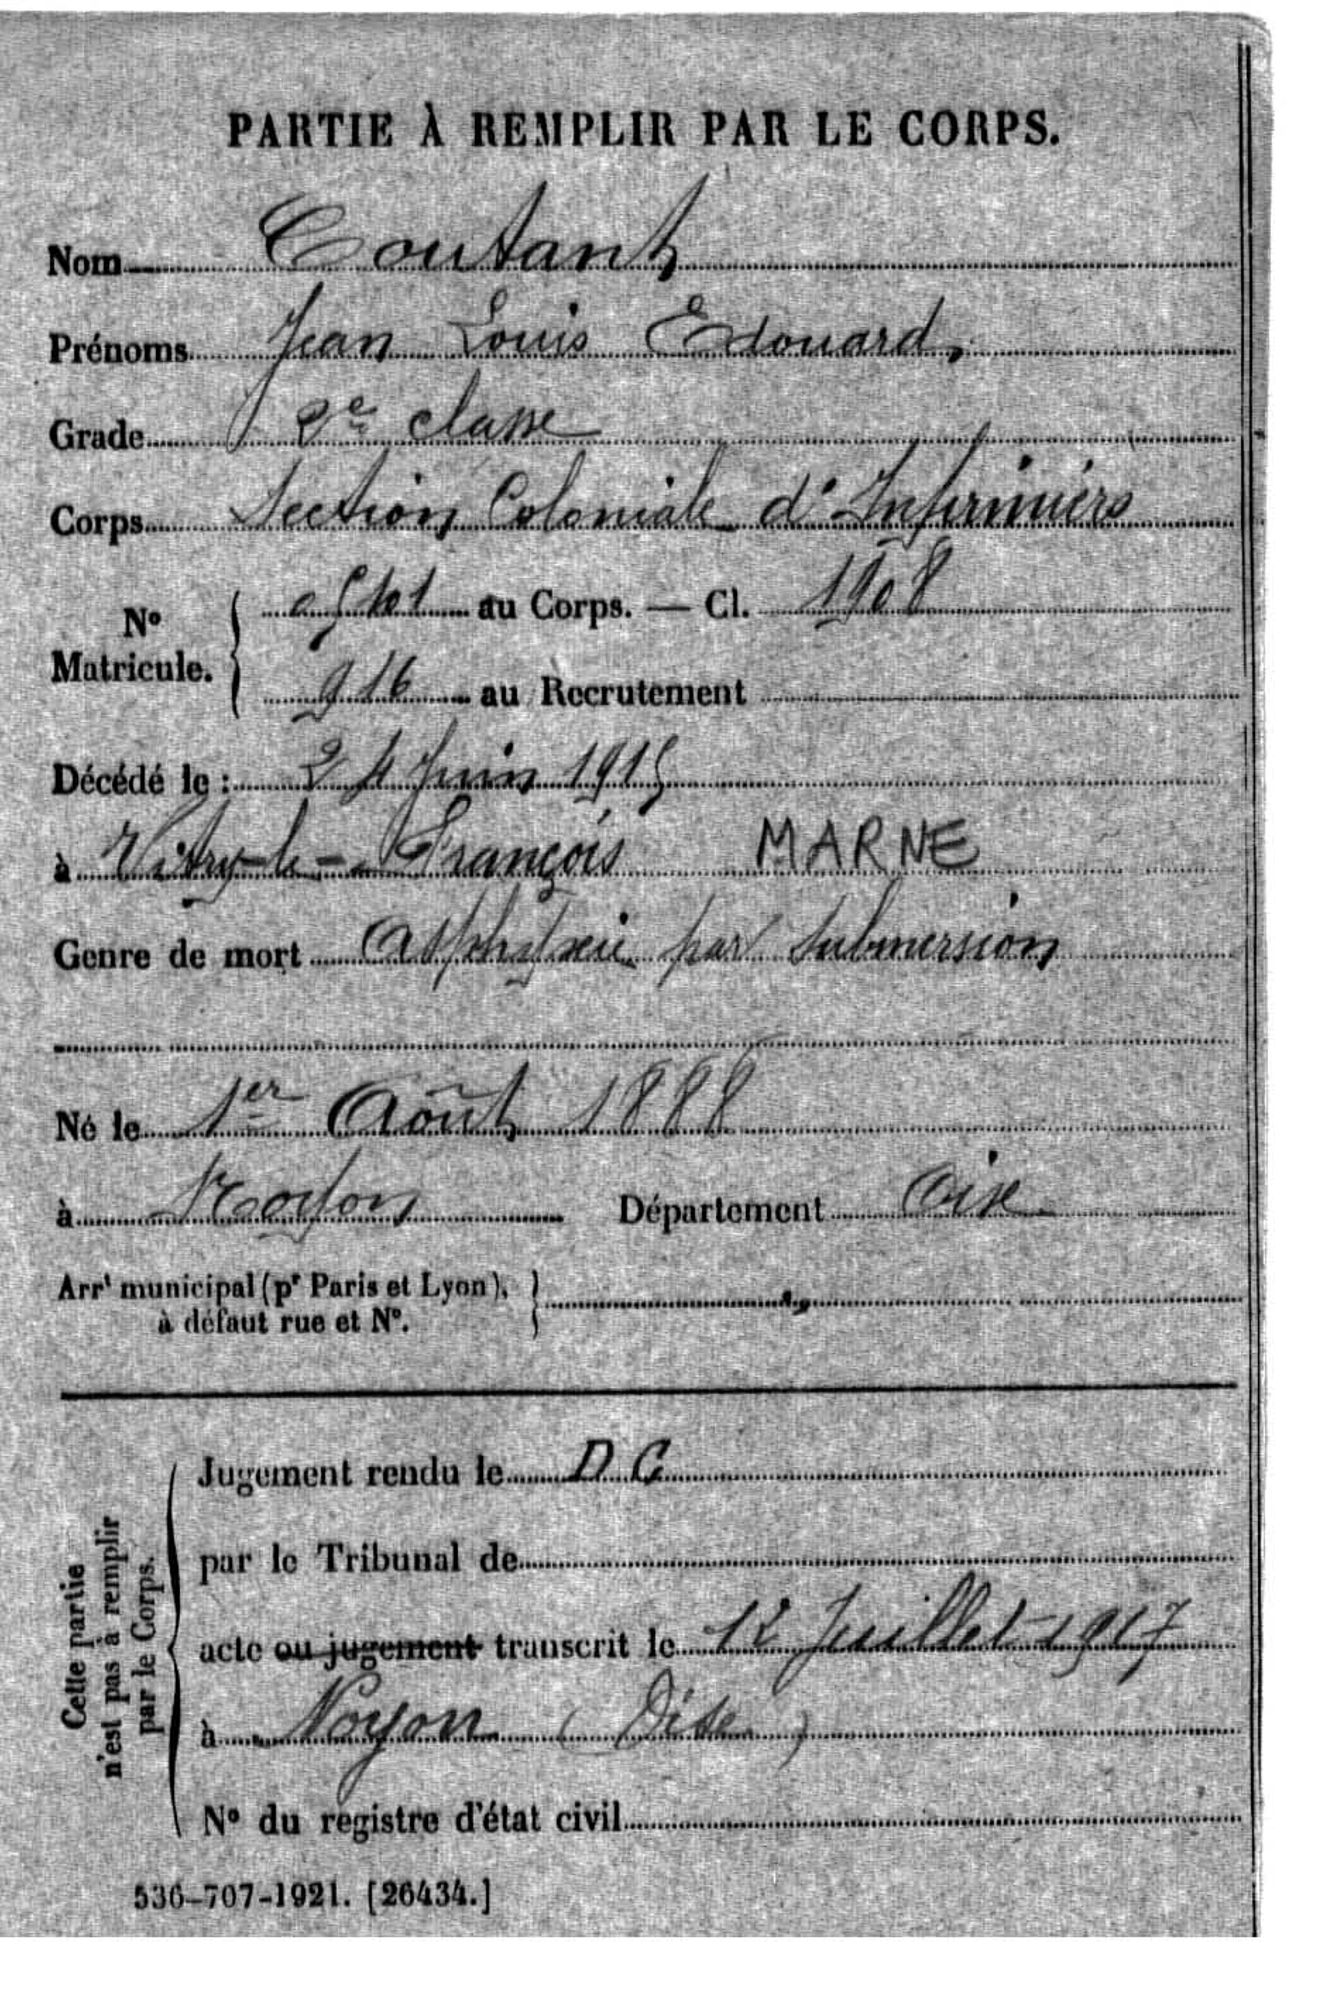 PARTIE À REMPLIR PAR LE CORPS.
Nom Coutant
Prénoms Jean Louis Edouard,
Grade 2e classe
Corps Section Coloniale d'Infirmiers
No Matricule. { au Corps. — Cl. 1908
916 au Recrutement
Décédé le : 24 Juin 1915
à Vitry-le-François MARNE
Genre de mort Asphyxie par submersion
Né le 1er Août 1888
à Noyon Département Oise
Arrt municipal (pr Paris et Lyon), }
à défaut rue et No.
Cette partie
n'est pas à remplir
par le Corps.
Jugement rendu le D C
par le Tribunal de
acte ou jugement transcrit le 12 Juillet 1917
à Noyon (Oise)
No du registre d'état civil
536-707-1921. [26434.]